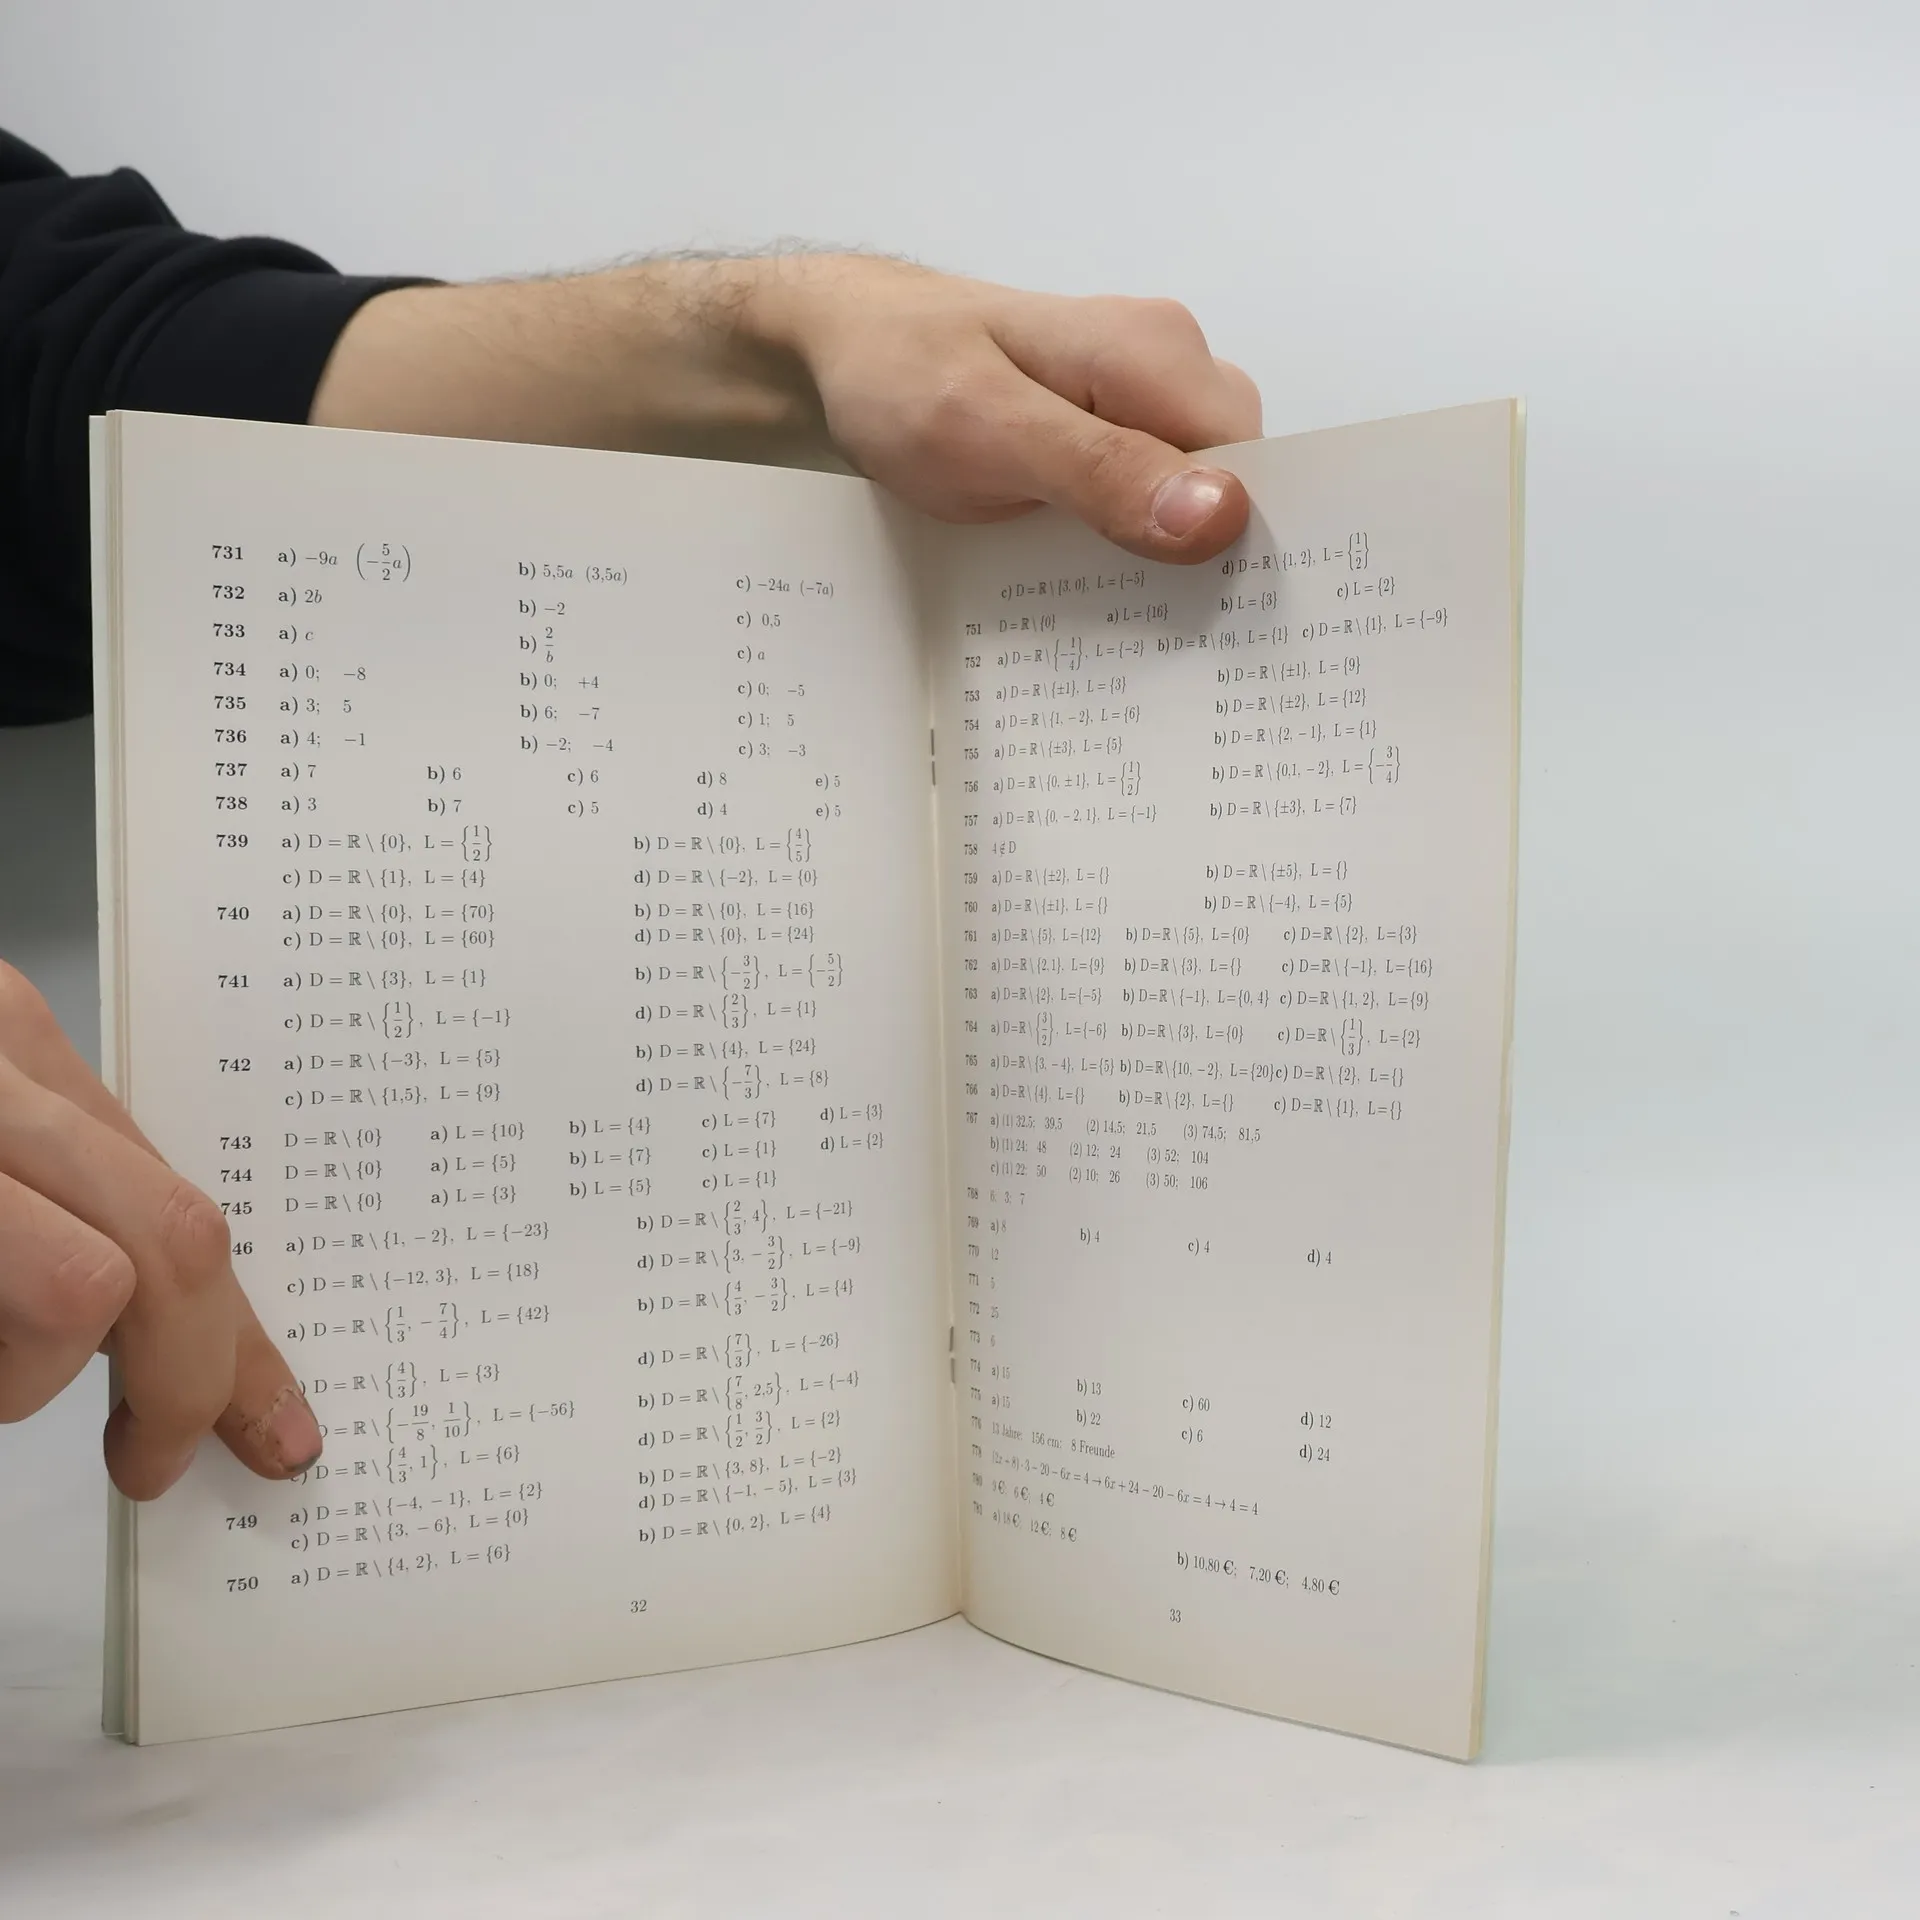 731 a) −9a (−5/2a) b) 5,5a (3,5a) c) −24a (−7a)
732 a) 2b b) −2 c) 0,5
733 a) c b) 2/b c) a
734 a) 0; −8 b) 0; +4 c) 0; −5
735 a) 3; 5 b) 6; −7 c) 1; 5
736 a) 4; −1 b) −2; −4 c) 3; −3
737 a) 7 b) 6 c) 6 d) 8 e) 5
738 a) 3 b) 7 c) 5 d) 4 e) 5
739 a) D = ℝ \ {0}, L = {1/2} b) D = ℝ \ {0}, L = {4/5}
c) D = ℝ \ {1}, L = {4} d) D = ℝ \ {−2}, L = {0}
740 a) D = ℝ \ {0}, L = {70} b) D = ℝ \ {0}, L = {16}
c) D = ℝ \ {0}, L = {60} d) D = ℝ \ {0}, L = {24}
741 a) D = ℝ \ {3}, L = {1} b) D = ℝ \ {−3/2}, L = {−5/2}
c) D = ℝ \ {1/2}, L = {−1} d) D = ℝ \ {2/3}, L = {1}
742 a) D = ℝ \ {−3}, L = {5} b) D = ℝ \ {4}, L = {24}
c) D = ℝ \ {1,5}, L = {9} d) D = ℝ \ {−7/3}, L = {8}
743 D = ℝ \ {0} a) L = {10} b) L = {4} c) L = {7} d) L = {3}
744 D = ℝ \ {0} a) L = {5} b) L = {7} c) L = {1} d) L = {2}
745 D = ℝ \ {0} a) L = {3} b) L = {5} c) L = {1}
46 a) D = ℝ \ {1, −2}, L = {−23} b) D = ℝ \ {2/3, 4}, L = {−21}
c) D = ℝ \ {−12, 3}, L = {18} d) D = ℝ \ {3, −3/2}, L = {−9}
a) D = ℝ \ {1/3, −7/4}, L = {42} b) D = ℝ \ {4/3, −3/2}, L = {4}
) D = ℝ \ {4/3}, L = {3} d) D = ℝ \ {7/3}, L = {−26}
D = ℝ \ {−19/8, 1/10}, L = {−56} b) D = ℝ \ {7/8, 2,5}, L = {−4}
c) D = ℝ \ {4/3, 1}, L = {6} d) D = ℝ \ {1/2, 3/2}, L = {2}
749 a) D = ℝ \ {−4, −1}, L = {2} b) D = ℝ \ {3, 8}, L = {−2}
c) D = ℝ \ {3, −6}, L = {0} d) D = ℝ \ {−1, −5}, L = {3}
750 a) D = ℝ \ {4, 2}, L = {6} b) D = ℝ \ {0, 2}, L = {4}
32
c) D = ℝ \ {3, 0}, L = {−5} d) D = ℝ \ {1, 2}, L = {1/2}
751 D = ℝ \ {0} a) L = {16} b) L = {3} c) L = {2}
752 a) D = ℝ \ {−1/4}, L = {−2} b) D = ℝ \ {9}, L = {1} c) D = ℝ \ {1}, L = {−9}
753 a) D = ℝ \ {±1}, L = {3} b) D = ℝ \ {±1}, L = {9}
754 a) D = ℝ \ {1, −2}, L = {6} b) D = ℝ \ {±2}, L = {12}
755 a) D = ℝ \ {±3}, L = {5} b) D = ℝ \ {2, −1}, L = {1}
756 a) D = ℝ \ {0, ±1}, L = {1/2} b) D = ℝ \ {0,1, −2}, L = {−3/4}
757 a) D = ℝ \ {0, −2, 1}, L = {−1} b) D = ℝ \ {±3}, L = {7}
758 4 ∉ D
759 a) D = ℝ \ {±2}, L = {} b) D = ℝ \ {±5}, L = {}
760 a) D = ℝ \ {±1}, L = {} b) D = ℝ \ {−4}, L = {5}
761 a) D=ℝ \ {5}, L={12} b) D=ℝ \ {5}, L={0} c) D=ℝ \ {2}, L={3}
762 a) D=ℝ \ {2,1}, L={9} b) D=ℝ \ {3}, L={} c) D=ℝ \ {−1}, L={16}
763 a) D=ℝ \ {2}, L={−5} b) D=ℝ \ {−1}, L={0, 4} c) D=ℝ \ {1, 2}, L={9}
764 a) D=ℝ \ {3/2}, L={−6} b) D=ℝ \ {3}, L={0} c) D=ℝ \ {1/3}, L={2}
765 a) D=ℝ \ {3, −4}, L={5} b) D=ℝ \ {10, −2}, L={20} c) D=ℝ \ {2}, L={}
766 a) D=ℝ \ {4}, L={} b) D=ℝ \ {2}, L={} c) D=ℝ \ {1}, L={}
767 a) (1) 32,5; 39,5 (2) 14,5; 21,5 (3) 74,5; 81,5
b) (1) 24; 48 (2) 12; 24 (3) 52; 104
c) (1) 22; 50 (2) 10; 26 (3) 50; 106
768 6; 3; 7
769 a) 8 b) 4 c) 4 d) 4
770 12
771 5
772 25
773 6
774 a) 15 b) 13 c) 60 d) 12
775 a) 15 b) 22 c) 6 d) 24
776 13 Jahre; 156 cm; 8 Freunde
778 (2x + 8) · 3 − 20 − 6x = 4 → 6x + 24 − 20 − 6x = 4 → 4 = 4
780 9 €; 6 €; 4 €
781 a) 18 €; 12 €; 8 € b) 10,80 €; 7,20 €; 4,80 €
33